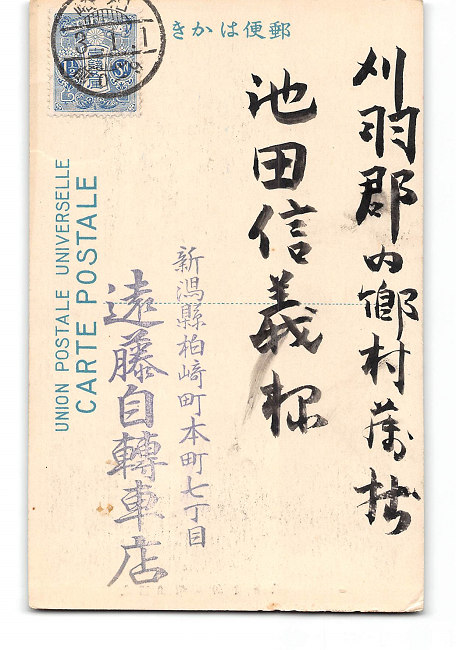 郵便はかき
刈羽郡内郷村
池田信義様
新潟縣柏崎町本町七丁目
遠藤自轉車店
UNION POSTALE UNIVERSELLE
CARTE POSTALE
1½ Sn
3.1.1